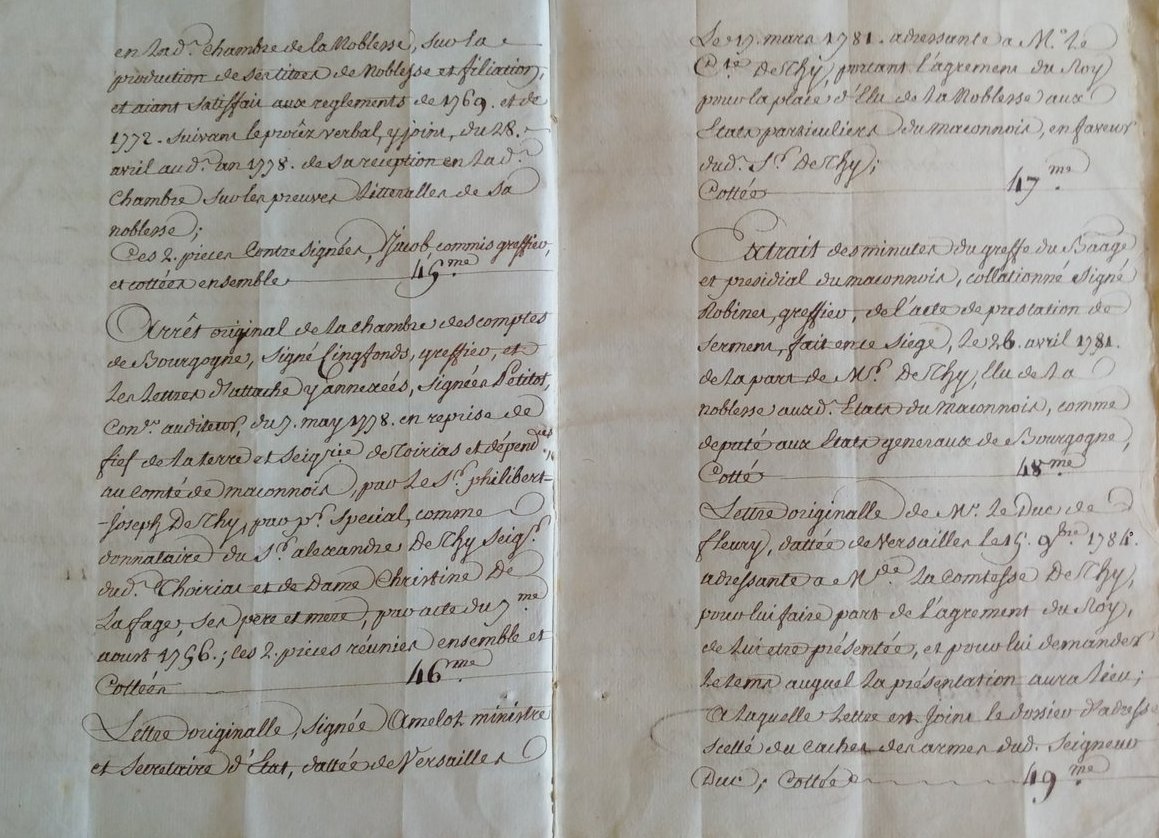 en lad.e chambre de la Noblesse, sur la
production de ses titres de Noblesse et filiation,
et aiant satisfait aux reglements de 1769. et de
1772. suivant le procès verbal, y joint, du 28.
avril aud.t an 1778. de sa reception en lad.e
Chambre sur les preuves litteralles de sa
noblesse;
Ces 2. pieces Contre signées, Jacob, commis greffier,
et cottées ensemble 45me.
Arrêt original de la chambre des comptes
de Bourgogne, signé Cinqfonds, greffier, et
les lettres d'attache y annexées, signées Petitot,
Con.er auditeur, du 7. may 1778. en reprise de
fief de la terre et seig.rie de Toirias et dépend.ces
au Comté de maconnois, par le S.r philibert-
-Joseph De Thy, par p.r special, comme
donnataire du S.r alexandre De Thy seig.r
dud. Thoirias et de Dame Christine De
La fage, ses pere et mere, par acte du 7me
aoust 1756.; les 2. pieces réunies ensemble et
Cottées 46me.
Lettre originalle, signée Amelot ministre
et secretaire d'État, dattée de Versailles
Le 17. mars 1781. adressante a M.r le
C.te De Thy, portant l'agrement du Roy
pour la place d'Elu de la Noblesse aux
Etats particuliers du maconnois, en faveur
dud. S.r De Thy;
Cottée 47me.
Extrait des minutes du greffe du Baage
et presidial du maconnois, collationné signé
Robinet, greffier, de l'acte de prestation de
serment, fait en ce siège, le 26. avril 1781.
de la part de M.r De Thy, Elu de la
noblesse auxd. Etats du maconnois, comme
deputé aux Etats generaux de Bourgogne,
Cotté 48me.
Lettre originalle de M.r le Duc de
fleury, dattée de Versailles le 15. 9bre 1784.
adressante a M.de la Comtesse De Thy,
pour lui faire part de l'agrement du Roy,
de lui etre présentée, et pour lui demander
le tems auquel la présentation aura lieu;
A laquelle Lettre est Joint le dossier d'adresse
scellé du cachet des armes dud. Seigneur
Duc; Cottée 49me.